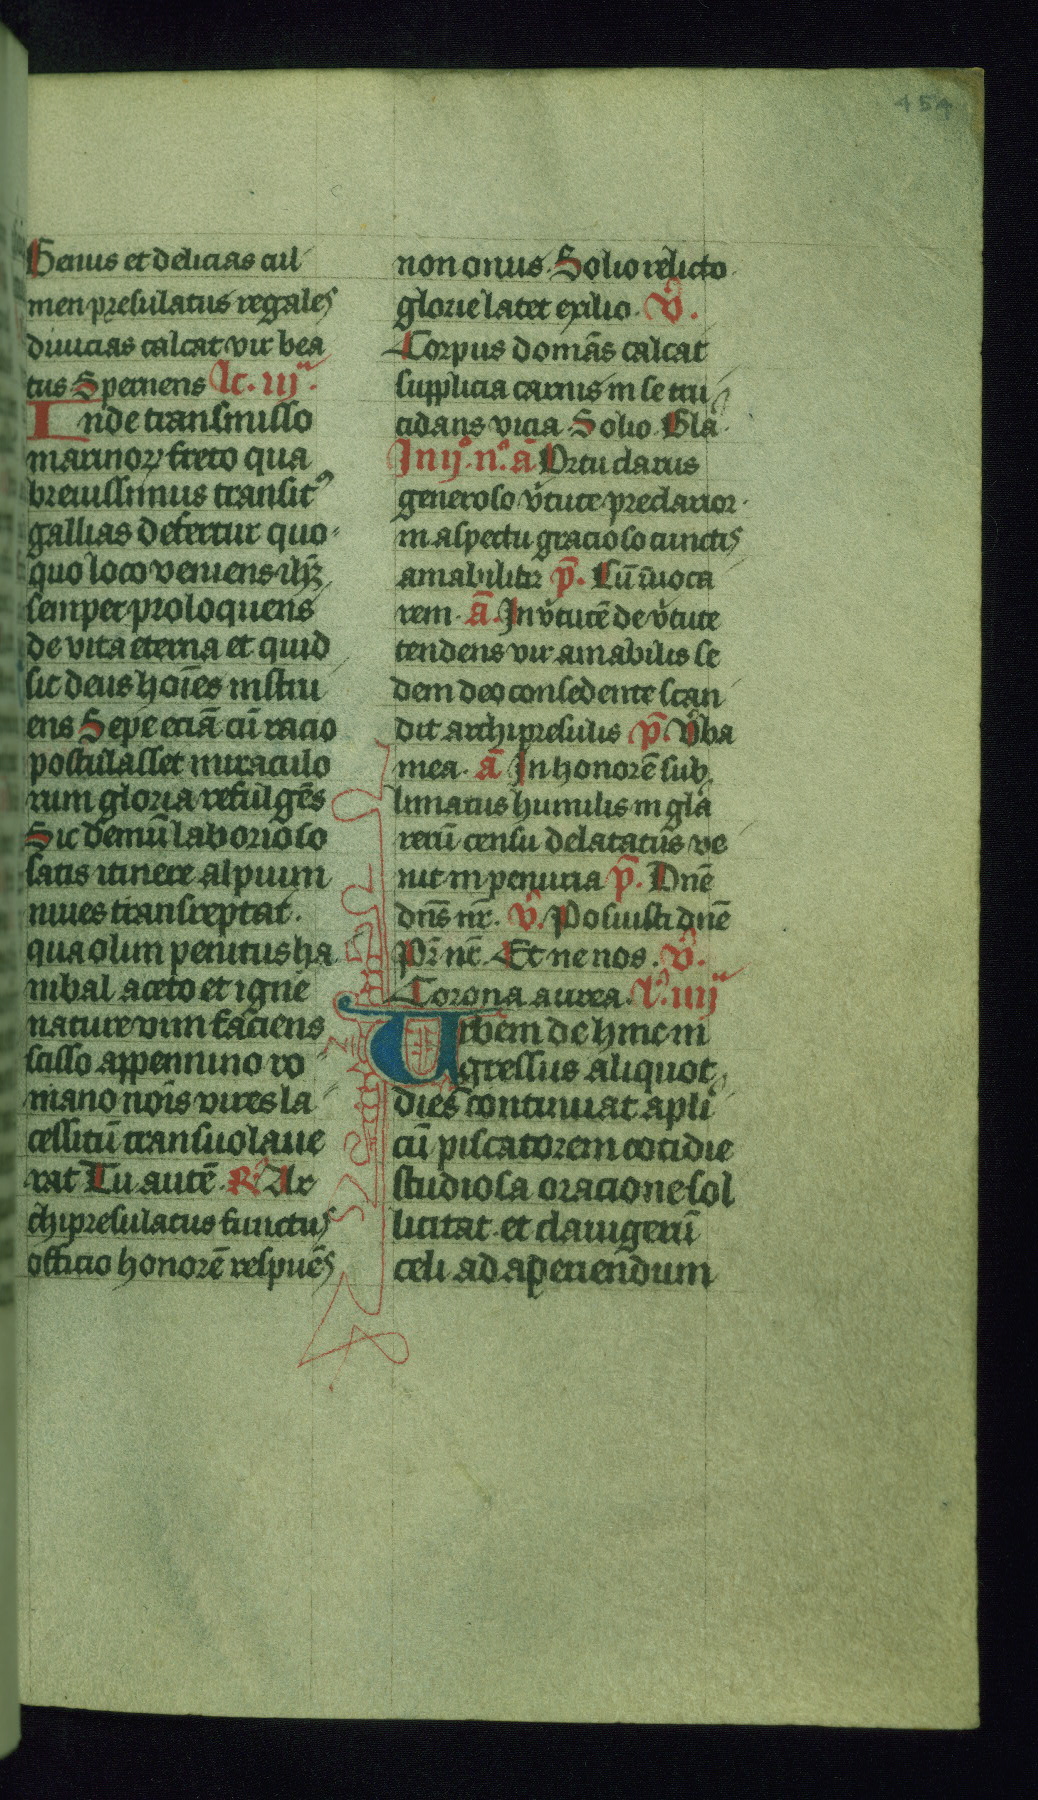 454
Genus et delicias cul
men presulatus regales
diuicias calcat vir bea
tus Spernens lc. iij.
Inde transmisso
marinoꝝ freto qua
breuissimus transitꝰ
gallias defertur quo
quo loco veniens
semper proloquens
de vita eterna et quid
sit deus hoı̄es instru
ens Sepe eciā cū racio
postulasset miraculo
rum gloria refulgēs
Sic demū laborioso
satis itinere alpium
niues transreptat.
qua olim penitus ha
nibal aceto et igne
nature vim faciens
scisso appennino ro
mano nōīs vires la
cessitū transuolaue
rat Tu autē R̄ Ar
chipresulatus functus
officio honorē respuēs
non onus. Solio relicto
glorie latet exilio. v̄.
Corpus domās calcat
supplicia carnis in se tru
cidans vicia. Solio. Glā
In ij. n̊. ā Ortu clarus
generoso v̄tute preclarior.
in aspectu gracioso cunctis
amabilitr p̄. Cū īuoca
rem. ā. In v̄tutē de v̄tute
tendens vir amabilis se
dem deo consedente scan
dit archipresulis p̄. v̄ba
mea. ā In honorē sub
limatus humilis in glā
rerū censu delatatus ve
nit in penuria p̄. Dn̄e
dn̄s nr̄. v̄. Posuisti dn̄e
Pr̄ nr̄. Et ne nos. v̄.
Corona aurea. l̄. iiij
Urbem de hinc in
gressus aliquot
dies continuat apli
cū piscatorem cotidie
studiosa oracione sol
licitat. et clauigerū
celi ad aperiendum